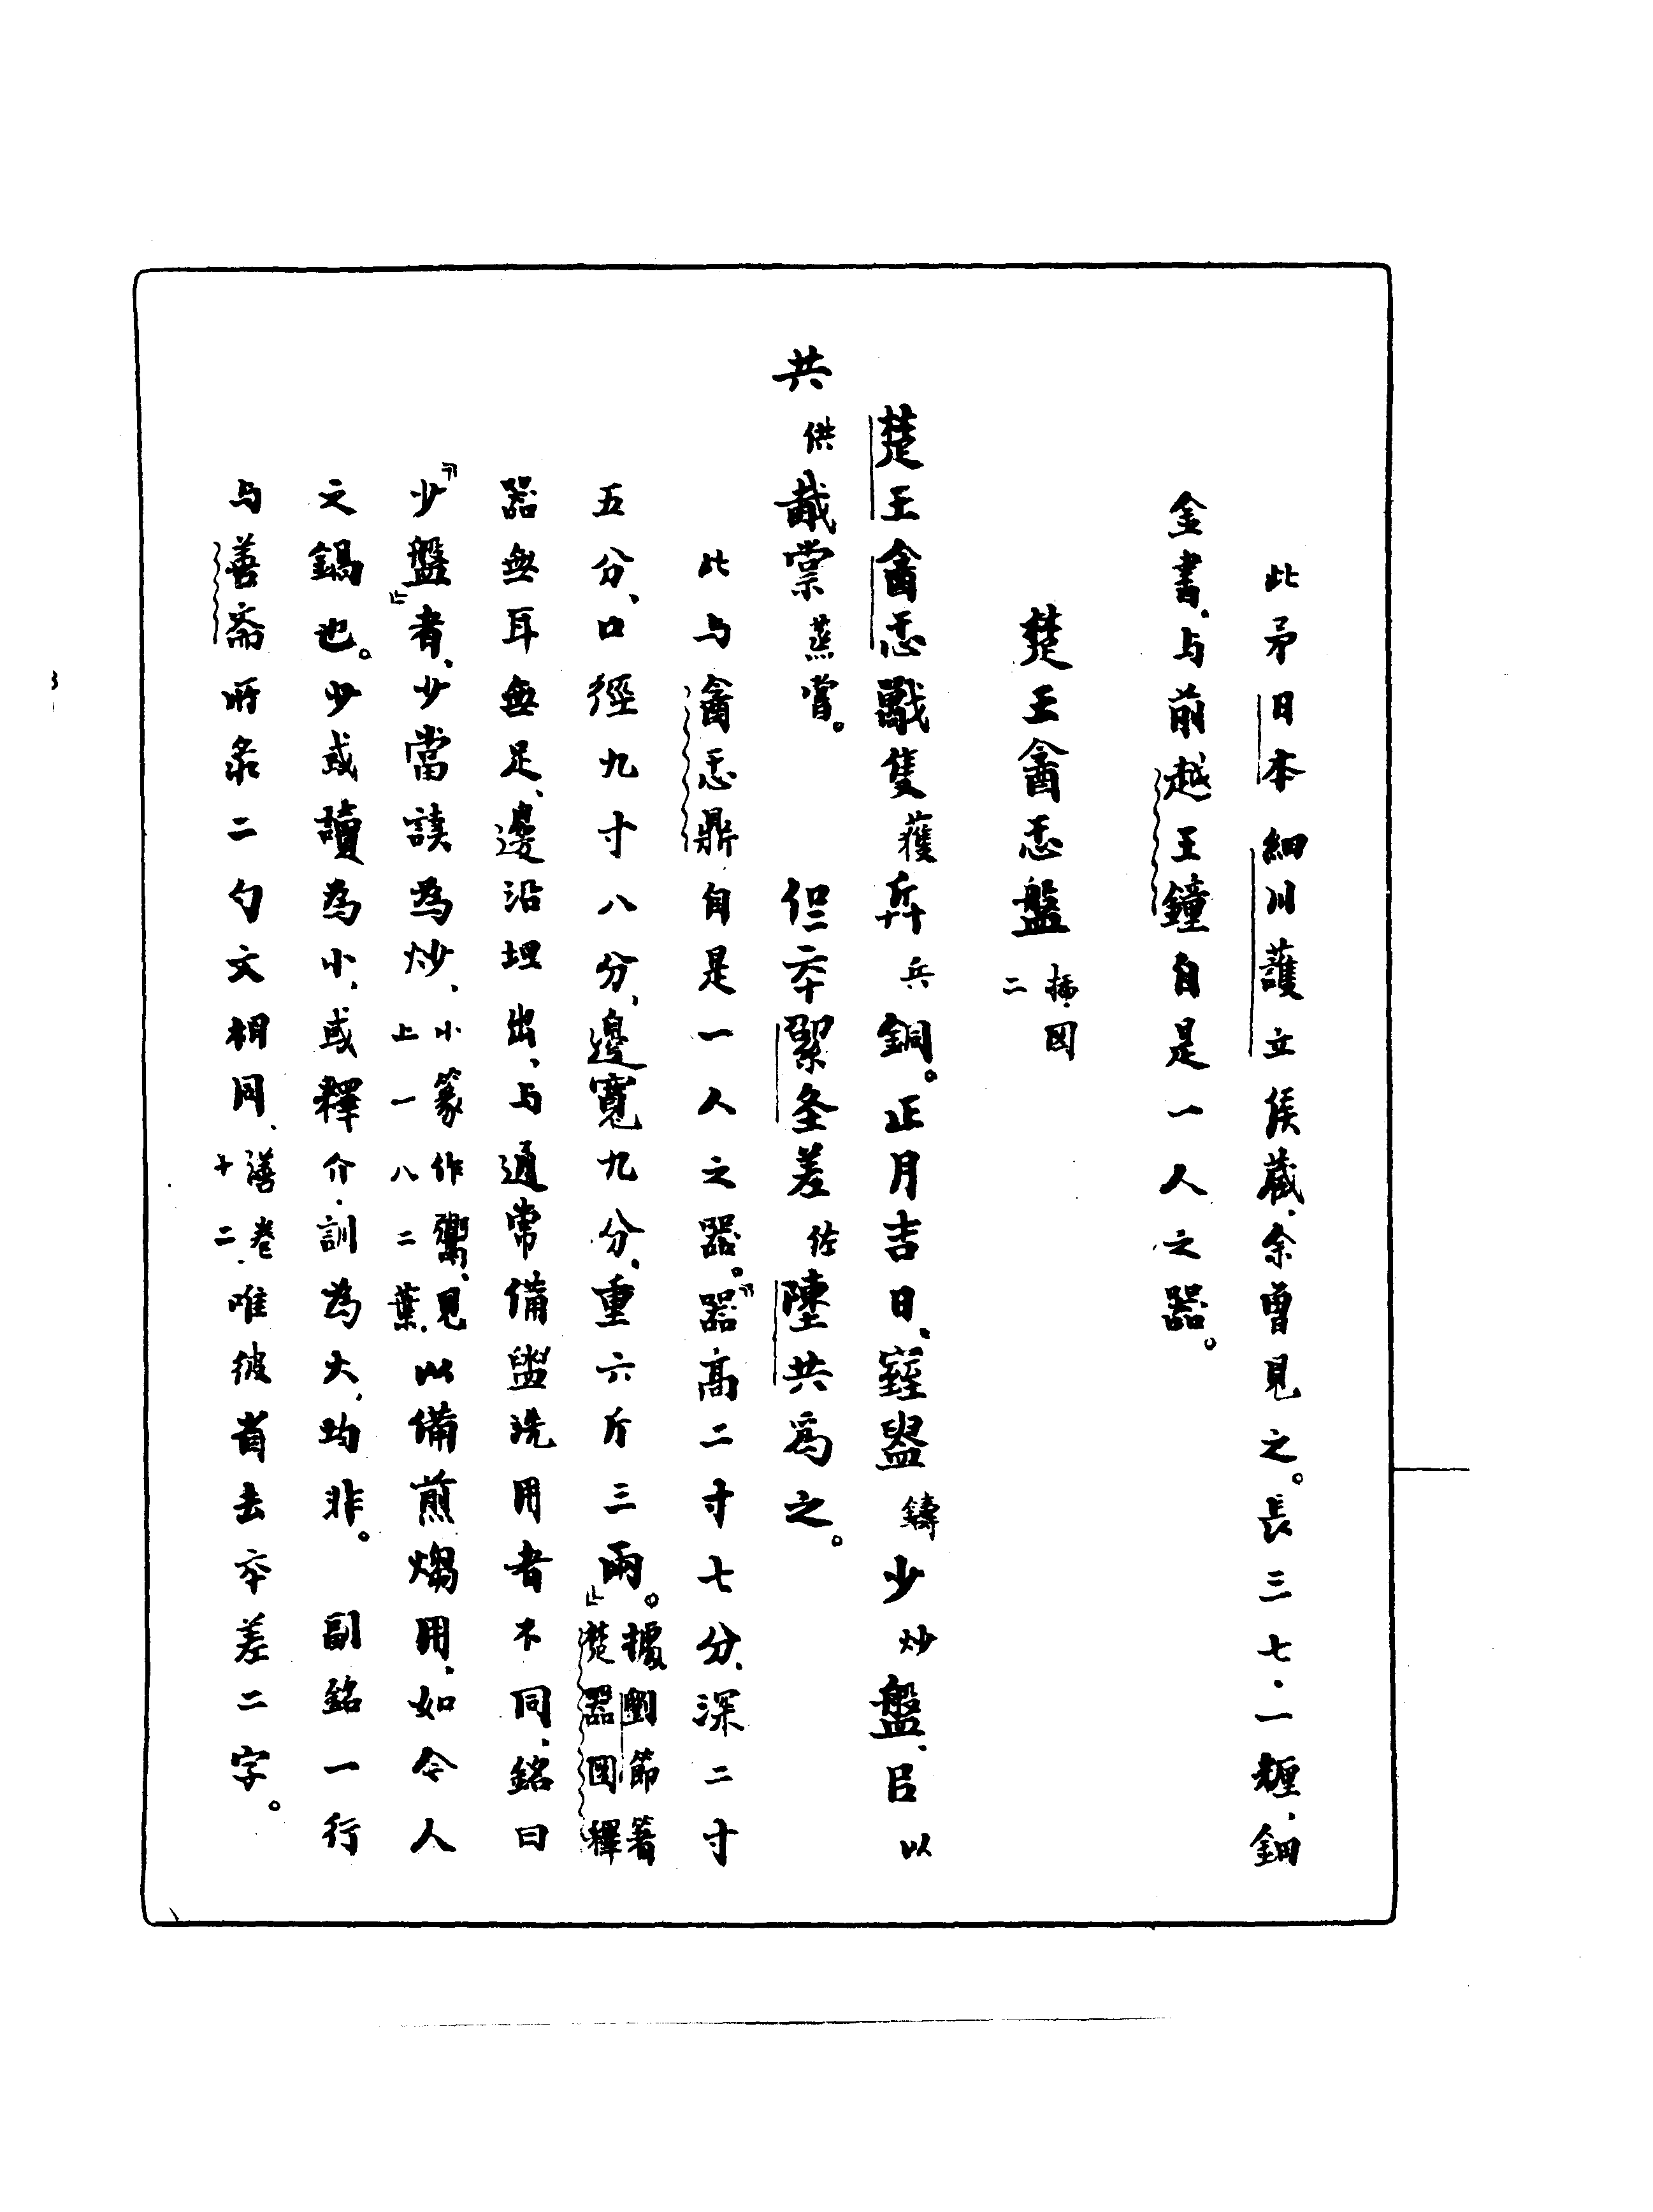 此矛日本細川護立侯蔵、余曾見之。長三七·一糎、鈿
金書、与前越王鐘自是一人之器。
楚王酓忎盤 插·图二
楚王酓忎戰隻獲兵銅。正月吉日、鑄少炒盤、㠯以
共供胾棠蒸嘗。 差佐陳共爲之。
此与酓忎鼎自是一人之器。『器高二寸七分、深二寸
五分、口徑九寸八分、邊寬九分、重六斤三兩。』據劉節著楚器图釋
器無耳無足、邊沿坦出、与通常備盥洗用者不同、銘曰
『少盤』者、少當讀為炒、小篆作䰞、見上一八二葉、以備煎煼用、如今人
之鍋也。少或讀為小、或釋介·訓為大、均非。 副銘一行
与善斋所录二勺文相同、善卷十二、唯彼省去卒差二字。